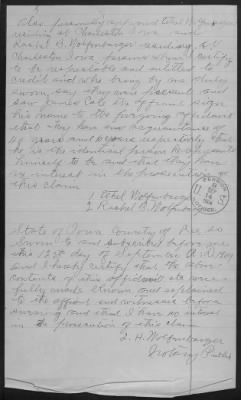 Also personally appeared Ethel Wolfenbarger
residing at Charleston Iowa and
Rachel B. Wolfenbarger residing at
Charleston Iowa persons whom I certify
to be respectable and entitled to
credit and who being by me duly
sworn, say they were present and
saw James Cole the affiant sign
his name to the foregoing affidavit
that they have an acquaintance of
years and years respectively that
he is the identical person he represents
himself to be and that they have
no interest in the prosecution of
this claim
1 Ethel Wolfenbarger
2 Rachel B. Wolfenbarger
State of Iowa County of Lee ss
Sworn to and subscribed before me
this 12th day of September A.D.
and I hereby certify that the
contents of this affidavit etc were
fully made known and explained
to the affiant and witnesses before
swearing and that I have no interest
in the prosecution of this claim
H. Wolfenbarger
Notary Public